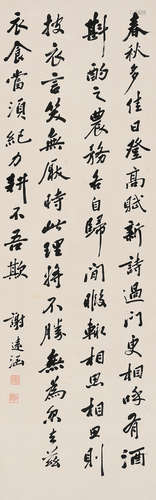 春秋多佳日登高賦新詩過門更相呼有酒
斟酌之農務各自歸閒暇輒相思相思則
披衣言笑無厭時此理將不勝無為忽去茲
衣食當須紀力耕不吾欺
謝遠涵